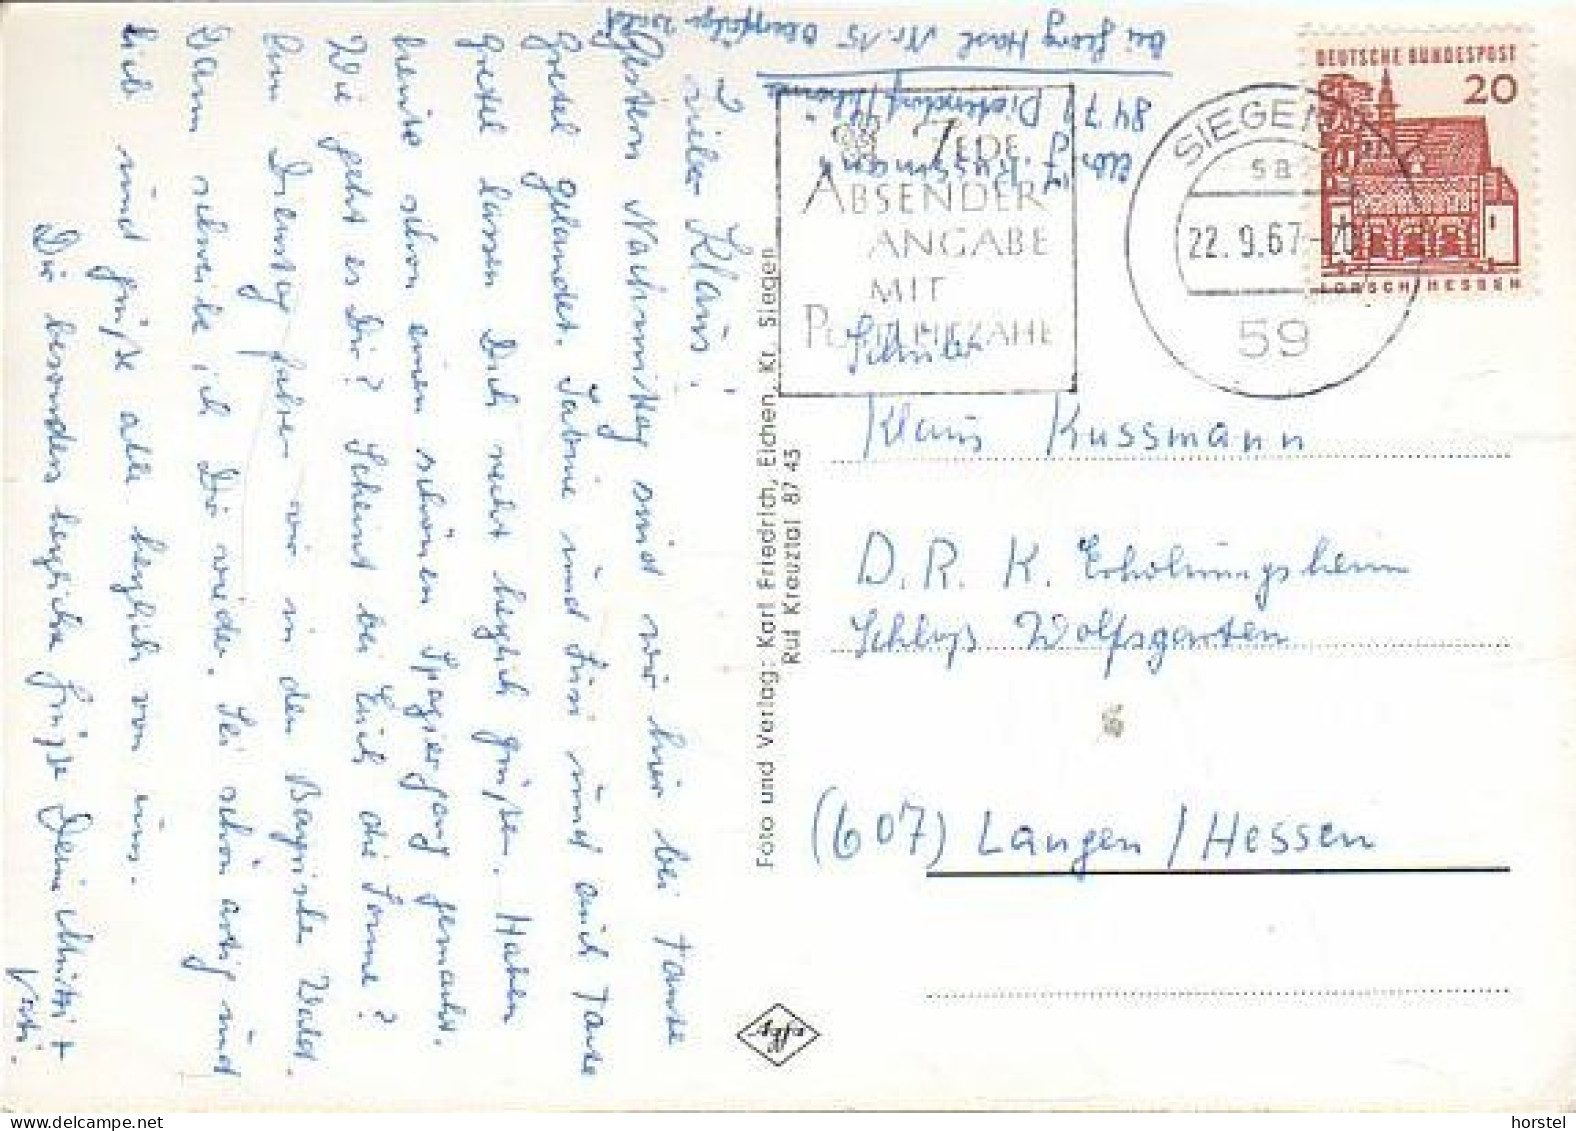 Lieber Klaus!
Gestern Nachmittag sind wir hier bei Tante
Gretel gelandet. Sabine und Susi und auch Tante
Gretel lassen Dich recht herzlich grüßen. Haben
heute schon einen schönen Spaziergang gemacht.
Wie geht es Dir? Scheint bei Euch die Sonne?
Am Dienstag fahren wir in den Bayrischen Wald.
Dann schreibe ich Dir wieder. Sei schön artig und
lieb und grüße alle herzlich von uns.
Dir besonders herzliche Grüße Deine Mutti +
Vati.
Abs. J. Kussmann
8471
bei Georg Hasl Nr. 15 Oberpfälzer Wald
JEDE
ABSENDER
ANGABE
MIT
POSTLEITZAHL
SIEGEN
22.9.67-20
59
DEUTSCHE BUNDESPOST
20
LORSCH/HESSEN
Foto und Verlag: Karl Friedrich, Eichen, Kr. Siegen
Ruf Kreuztal 87 43
Schüler
Klaus Kussmann
D. R. K. Erholungsheim
Schloß Wolfsgarten
(607) Langen / Hessen
horstel